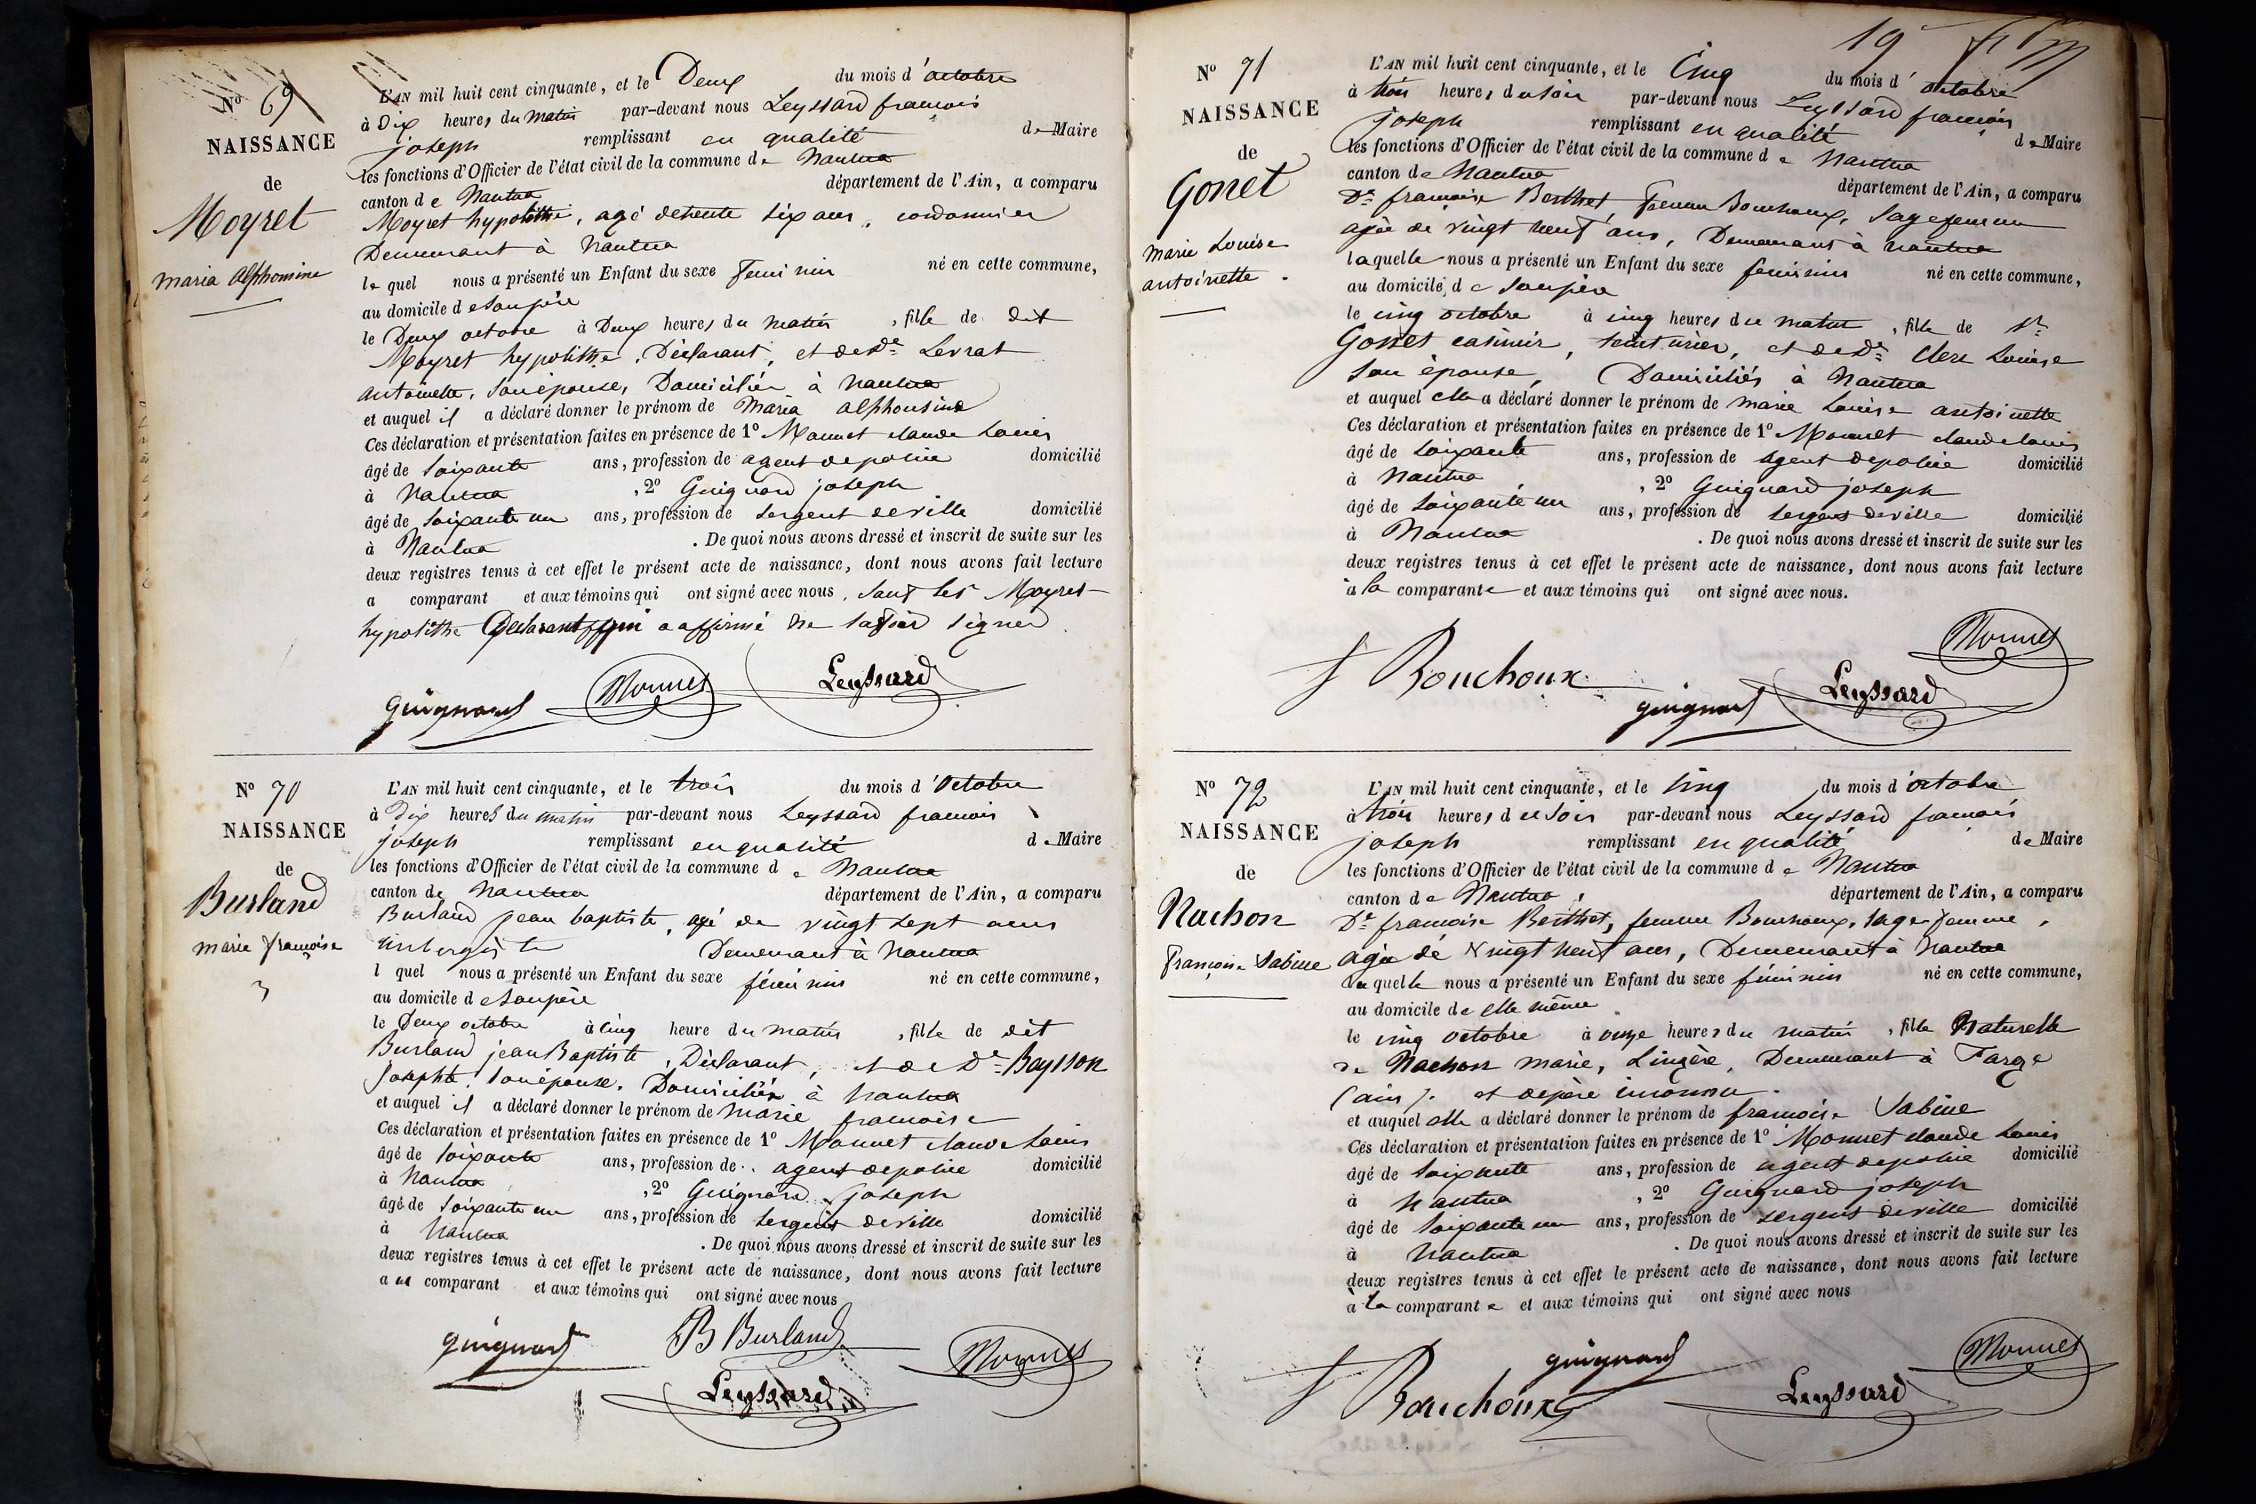 N° 69
NAISSANCE
de
Moyret
maria alphonsine
L'AN mil huit cent cinquante, et le Deux du mois d'octobre
à Dix heures du matin par-devant nous Leyssard françois
joseph remplissant en qualité de Maire
les fonctions d'Officier de l'état civil de la commune de Nantua
canton de Nantua département de l'Ain, a comparu
Moyret hypolithe, agé detrente six ans, cordonnier
Demeurant à Nantua
le quel nous a présenté un Enfant du sexe feminin né en cette commune,
au domicile de sonpère
le Deux octobre à Deux heures du matin, fille de dit
Moyret hypolithe, Déclarant, et de De Levrat
antoinette, sonépouse, Domiciliés à Nantua
et auquel il a déclaré donner le prénom de Maria alphonsine
Ces déclaration et présentation faites en présence de 1° Monnet claude Louis
âgé de soixante ans, profession de agent depolice domicilié
à Nantua, 2° Guignard joseph
âgé de soixante un ans, profession de sergent deville domicilié
à Nantua. De quoi nous avons dressé et inscrit de suite sur les
deux registres tenus à cet effet le présent acte de naissance, dont nous avons fait lecture
a comparant et aux témoins qui ont signé avec nous, sauf les Moyret
hypolithe Déclarant qui a affirmé ne savoir signer
guignard Monnet Leyssard
N° 70
NAISSANCE
de
Burland
marie françoise
L'AN mil huit cent cinquante, et le trois du mois d'octobre
à dix heures du matin par-devant nous Leyssard françois
joseph remplissant en qualité de Maire
les fonctions d'Officier de l'état civil de la commune de Nantua
canton de Nantua département de l'Ain, a comparu
Burland jean baptiste, agé de vingt sept ans
Demeurant à Nantua
l quel nous a présenté un Enfant du sexe féminin né en cette commune,
au domicile de sonpère
le Deux octobre à cinq heure du matin, fille de dit
Burland jean Baptiste, Déclarant, et de De Baysson
Josephte, sonépouse, Domiciliés à Nantua
et auquel il a déclaré donner le prénom de marie françoise
Ces déclaration et présentation faites en présence de 1° Monnet claude Louis
âgé de soixante ans, profession de agent depolice domicilié
à Nantua, 2° Guignard joseph
âgé de soixante un ans, profession de sergent deville domicilié
à Nantua. De quoi nous avons dressé et inscrit de suite sur les
deux registres tenus à cet effet le présent acte de naissance, dont nous avons fait lecture
a u comparant et aux témoins qui ont signé avec nous
guignard B Burland Monnet
Leyssard
19
N° 71
NAISSANCE
de
Gonet
marie Louise
antoinette
L'AN mil huit cent cinquante, et le Cinq du mois d'octobre
à trois heures du soir par-devant nous Leyssard françois
joseph remplissant en qualité de Maire
les fonctions d'Officier de l'état civil de la commune de Nantua
canton de Nantua département de l'Ain, a comparu
De françoise Berthet, femme Bouchoux, sagefemme
agée de vingt neuf ans, Demeurant à Nantua
laquelle nous a présenté un Enfant du sexe feminin né en cette commune,
au domicile de sonpère
le cinq octobre à cinq heures du matin, fille de Sr
Gonet casimir, teinturier, et de De Clerc Louise
son épouse, Domiciliés à Nantua
et auquel elle a déclaré donner le prénom de marie Louise antoinette
Ces déclaration et présentation faites en présence de 1° Monnet claudelouis
âgé de soixante ans, profession de agent depolice domicilié
à Nantua, 2° Guignard joseph
âgé de soixante un ans, profession de sergent deville domicilié
à Nantua. De quoi nous avons dressé et inscrit de suite sur les
deux registres tenus à cet effet le présent acte de naissance, dont nous avons fait lecture
à la comparante et aux témoins qui ont signé avec nous.
f Bouchoux guignard Leyssard Monnet
N° 72
NAISSANCE
de
Nachon
françoise Sabine
L'AN mil huit cent cinquante, et le cinq du mois d'octobre
à trois heures du soir par-devant nous Leyssard françois
joseph remplissant en qualité de Maire
les fonctions d'Officier de l'état civil de la commune de Nantua
canton de Nantua, département de l'Ain, a comparu
De françoise Berthet, femme Bouchoux, sage femme,
agée de vingt neuf ans, Demeurant à Nantua
la quelle nous a présenté un Enfant du sexe féminin né en cette commune,
au domicile de elle même
le cinq octobre à onze heures du matin, fille Naturelle
de Nachon marie, Lingère, Demeurant à Farge
(ain). et depère inconnu.
et auquel elle a déclaré donner le prénom de françoise Sabine
Ces déclaration et présentation faites en présence de 1° Monnet claude Louis
âgé de soixante ans, profession de agent depolice domicilié
à Nantua, 2° Guignard joseph
âgé de soixante un ans, profession de sergent deville domicilié
à Nantua. De quoi nous avons dressé et inscrit de suite sur les
deux registres tenus à cet effet le présent acte de naissance, dont nous avons fait lecture
à la comparante et aux témoins qui ont signé avec nous
f Bouchoux guignard Leyssard Monnet